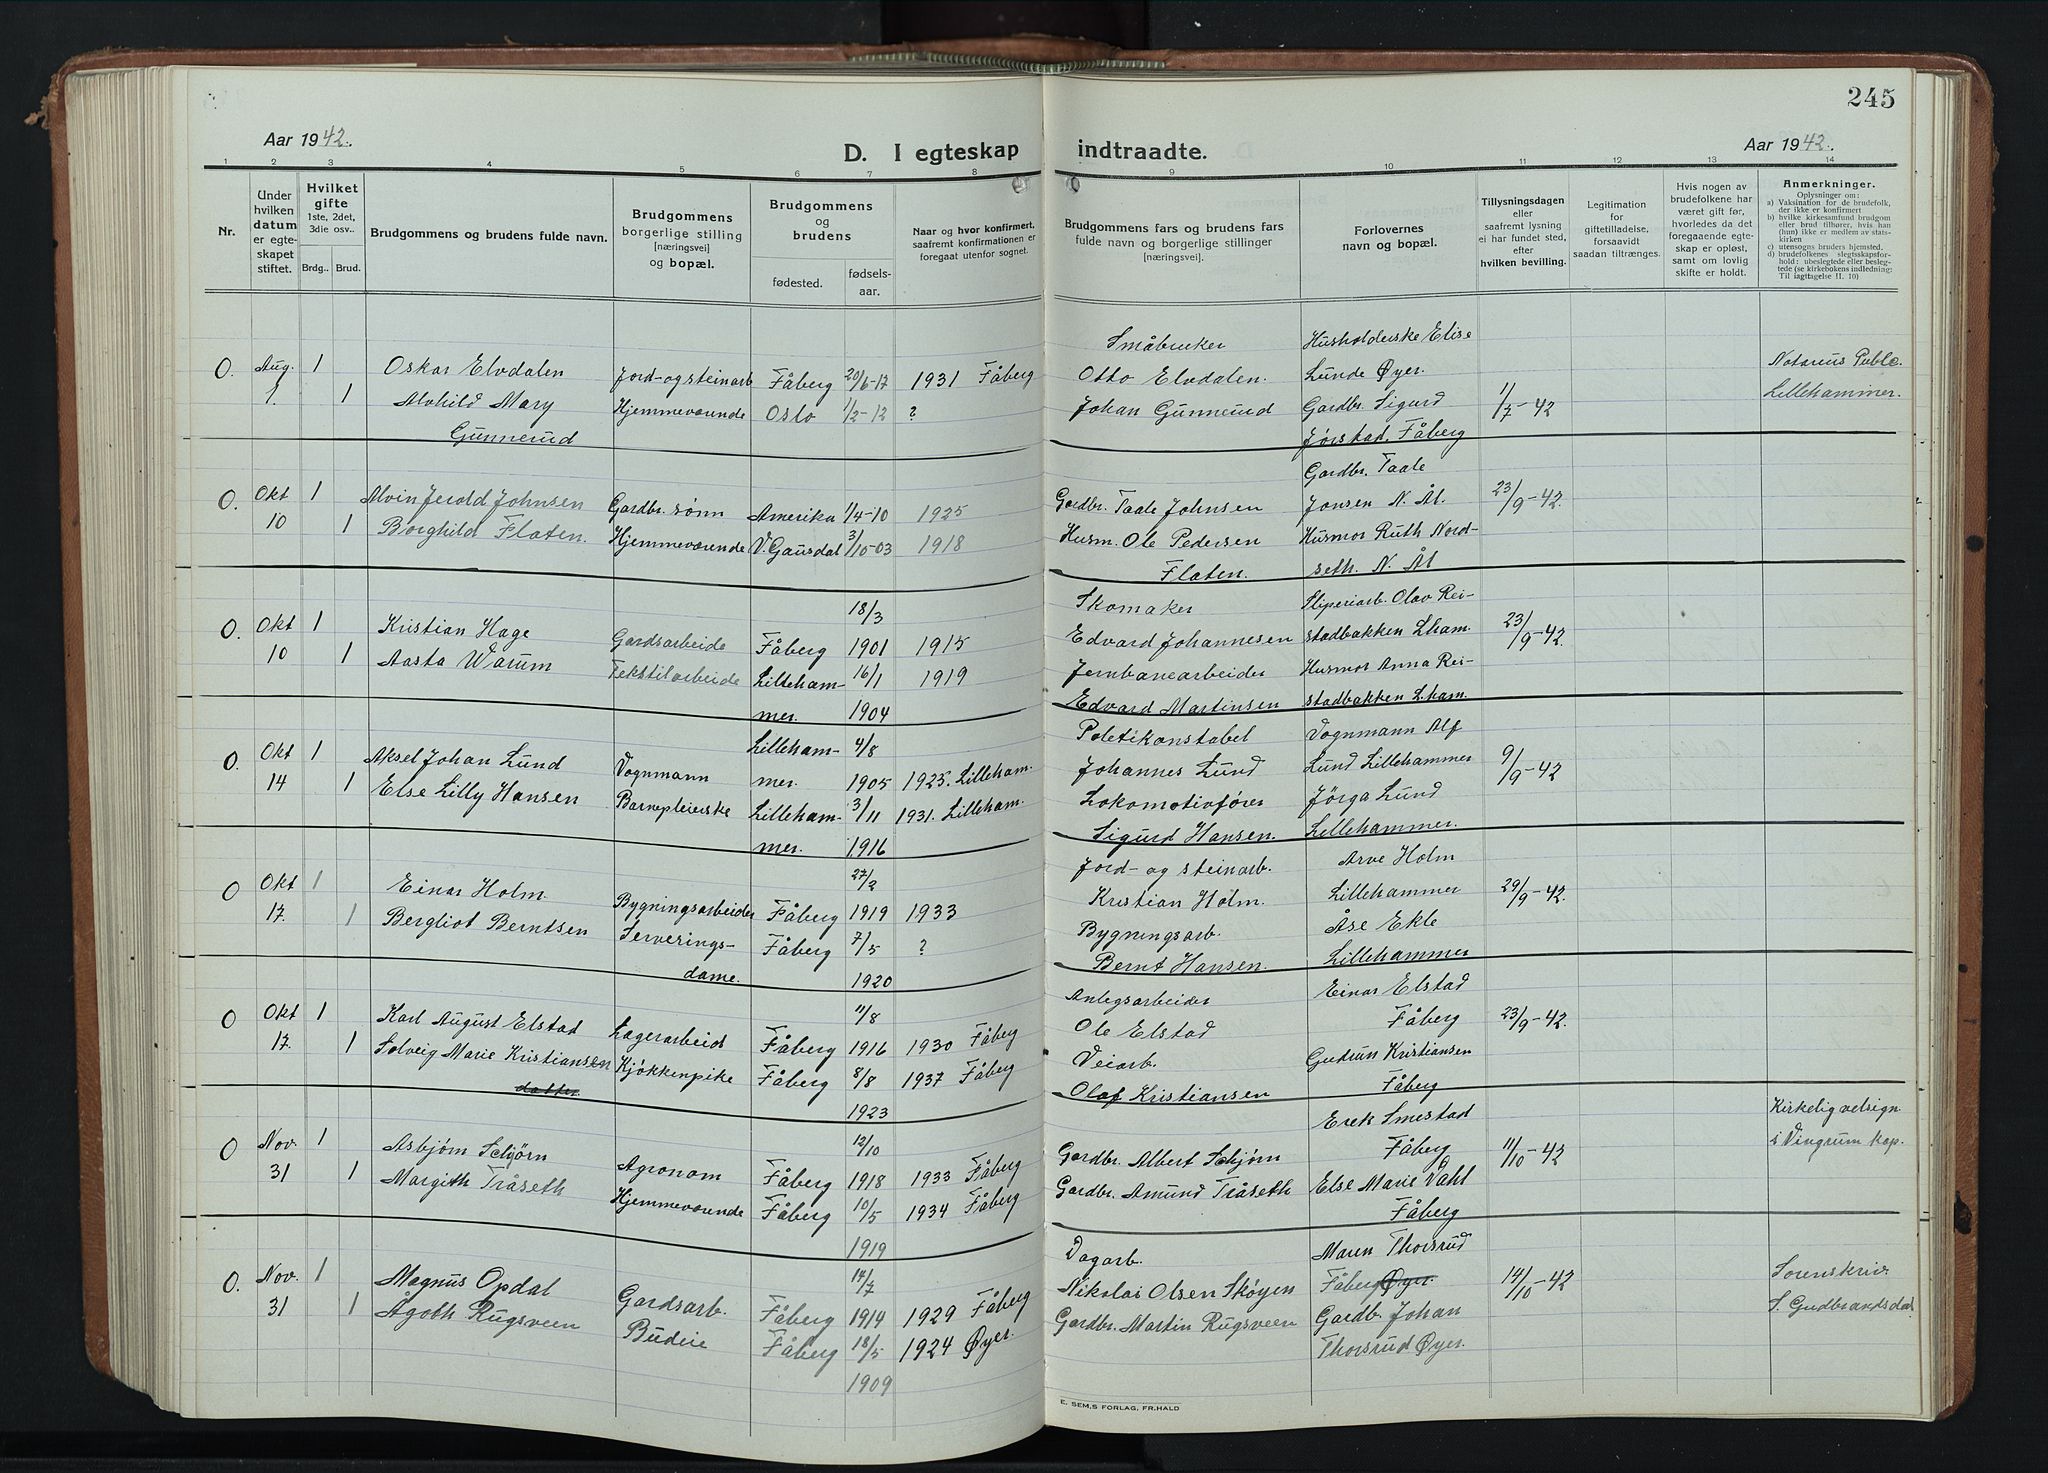 245
Aar 1942.
D. I egteskap indtraadte.
Aar 1942.
1 2 3 4 5 6 7 8 9 10 11 12 13 14
Nr.
Under hvilken datum er egteskapet stiftet.
Hvilket gifte 1ste, 2det, 3die osv..
Brdg.. Brud.
Brudgommens og brudens fulde navn.
Brudgommens borgerlige stilling [næringsvei] og bopæl.
Brudgommens og brudens
fødested. fødsels-aar.
Naar og hvor konfirmert, saafremt konfirmationen er foregaat utenfor sognet.
Brudgommens fars og brudens fars fulde navn og borgerlige stillinger [næringsvei].
Forlovernes navn og bopæl.
Tillysningsdagen eller saafremt lysning ei har fundet sted, efter hvilken bevilling.
Legitimation for giftetilladelse, forsaavidt saadan tiltrænges.
Hvis nogen av brudefolkene har været gift før, hvorledes da det foregaaende egteskap er opløst, samt om lovlig skifte er holdt.
Anmerkninger.
Oplysninger om:
a) Vaksination for de brudefolk, der ikke er konfirmert
b) hvilke kirkesamfund brudgom eller brud tilhører, hvis han (hun) ikke er medlem av statskirken
c) utensogns bruders hjemsted.
d) brudefolkenes slegtsskapsforhold: ubeslegtede eller beslegtede (se kirkebokens indledning: Til iagttagelse II. 10)
0. Aug. 1 Oskar Elvdalen Jord- og steinarb Fåberg 20/6-17 1931 Fåberg
1. 1 Alvhild Mary Hjemmeværende Oslo 1/2-12 ?
Gunnerud
Småbruker
Otto Elvdalen.
Johan Gunnerud
Husholderske Elise
Lunde Øyer.
Gardbr. Sigurd
Jørstad, Fåberg
1/7-42
Notarius Public.
Lillehammer.
0. Okt 1 Alvin Jerold Johnsen Gardbr. sønn Amerika 1/4-10 1925
10 1 Borghild Flaten. Hjemmeværende V. Gausdal 3/10-03 1918
Gardbr. Taale Johnsen
Husm. Ole Pedersen
Flaten.
Gardbr. Taale
Jonsen N. Ål.
Husmor Ruth Nord-
seth. N. Ål
23/9-42.
0. Okt 1 Kristian Hage Gardsarbeide Fåberg 18/3 1901 1915
10 1 Aasta Warum Tekstilarbeide Lilleham-
mer. 16/1 1904 1919
Skomaker
Edvard Johannesen
Jernbanearbeider
Edvard Martinsen
Sliperiarb. Olav Rei-
stadbakken Lham.
Husmor Anna Rei-
stadbakken L.ham.
23/9-42.
0. Okt 1 Aksel Johan Lund Vognmann Lilleham-
mer. 4/8 1905 1925. Lilleham.
14 1 Else Lilly Hansen Barnepleierske Lilleham-
mer. 3/11 1916 1931. Lilleham.
Poletikonstabel
Johannes Lund
Lokomotivfører
Sigurd Hansen.
Vognmann Alf
Lund Lillehammer
Jörga Lund
Lillehammer.
9/9-42
0 Okt 1 Einar Holm. Bygningsarbeider Fåberg 27/2 1919 1933
17. 1 Bergliot Berntsen Serverings-
dame. Fåberg 7/5 1920 ?
Jord- og steinarb.
Kristian Holm.
Bygningsarb.
Bernt Hansen.
Arve Holm
Lillehammer
Åse Ekle
Lillehammer
29/9-42.
0 Okt 1 Karl August Elstad Lagerarbeid Fåberg 11/8 1916 1930 Fåberg
17. 1 Solveig Marie Kristiansen Kjøkkenpike Fåberg 8/8 1923 1937 Fåberg
datter
Anlegsarbeider
Ole Elstad
Veiarb.
Olaf Kristiansen
Einar Elstad
Fåberg
Gudrun Kristiansen
Fåberg
23/9-42.
0 Nov. 1 Asbjørn Schjörn Agronom Fåberg 12/10 1918 1933 Fåberg
31 1 Margith Tråseth Hjemmeværende Fåberg 10/5 1919 1934 Fåberg
Gardbr. Albert Schjørn
Gardbr. Amund Tråseth
Erek Smestad
Fåberg
Else Marie Vahl
Fåberg
11/10-42
Kirkelig velsign
i Vingrum kap.
0. Nov. 1 Magnus Opdal Gardsarb. Fåberg 17/7 1914 1929 Fåberg
31 1 Ågoth Rugsveen Budeie Fåberg 18/5 1909 1924 Øyer.
Dagarb.
Nikolai Olsen Skøyen
Gardbr. Martin Rugsveen
Maren Thorsrud
Fåberg Øyer.
Gardb. Johan
Thorsrud Øyer.
14/10-42
Sorenskriv.
S. Gudbrandsdal
E. SEM,S FORLAG, FR.HALD